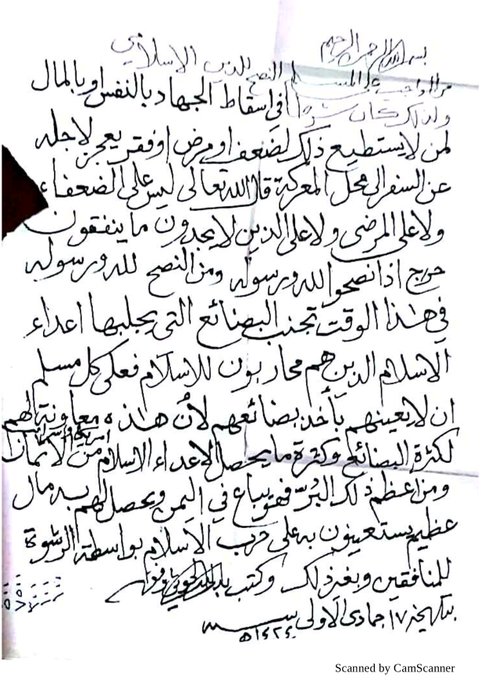 بسم الله الرحمن الرحيم
من الواجب على المسلم النصح للدين الاسلامي
ولذلك كان شرطا في اسقاط الجهاد بالنفس او بالمال
لمن لا يستطيع ذلك لضعف او مرض او فقر يعجز لاجله
عن السفر الى محل المعركة قال الله تعالى ليس على الضعفاء
ولا على المرضى ولا على الذين لا يجدون ما ينفقون
حرج اذا نصحوا لله ورسوله ومن النصح لله ورسوله
في هذا الوقت تجنب البضائع التي يجلبها اعداء
الاسلام الذين هم محاربون للاسلام فعلى كل مسلم
ان لا يعينهم بأخذ بضائعهم لأن هذه معاونة لهم
لكثرة البضائع وكثرة ما يحصل لاعداء الاسلام من الاثمان
ومن اعظم ذلك البُرّ فهو يباع في اليمن ويحصل لهم به مال
عظيم يستعينون به على حرب الاسلام بواسطة الرشوة
للمنافقين وبغير ذلك وكتب بدر الدين الحوثي وفقه
بتاريخ ١٧ جمادى الاولى سنة
١٤٢٤ه
Scanned by CamScanner